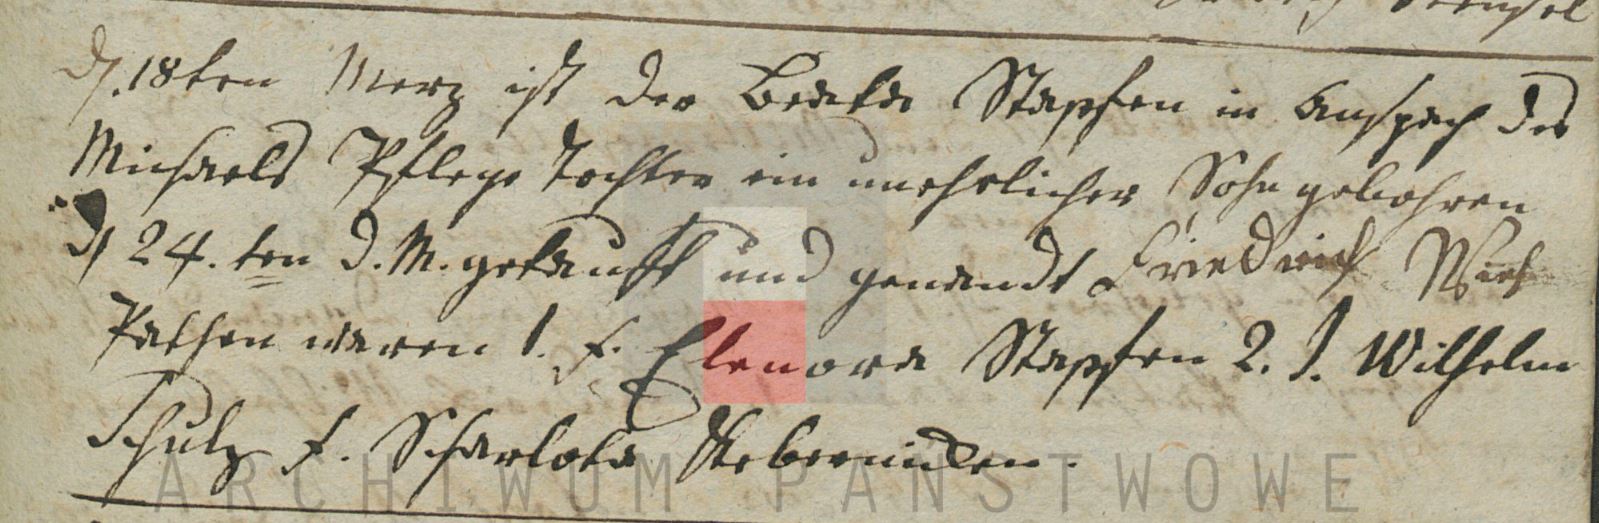 d. 18ten Merz ist der Beata Stapfen in Anspach des
Michaels Pflege Tochter ein unehelicher Sohn gebohren
d 24. ten d. M. getauft und genandt Friedrich
Pathen waren 1. F. Elenora Stapfen 2. J. Wilhelm
Schulz F. Scharlota
ARCHIWUM PAŃSTWOWE